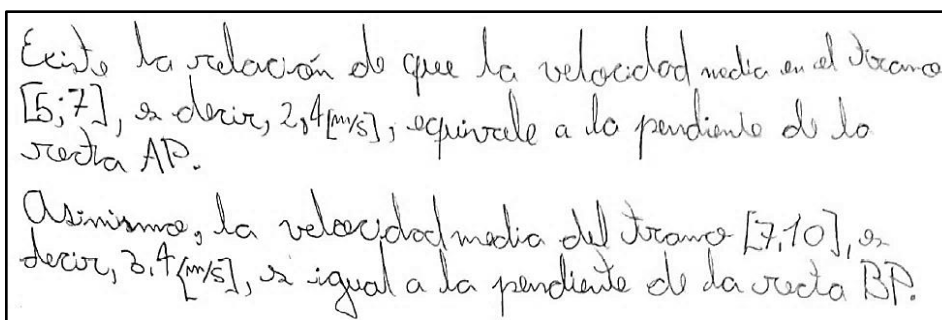 Existe la relación de que la velocidad media en el tramo
[5;7], es decir, 2,4[m/s], equivale a la pendiente de la
recta AP.
Asimismo, la velocidad media del tramo [7,10], es
decir, 3,4[m/s], es igual a la pendiente de la recta BP.